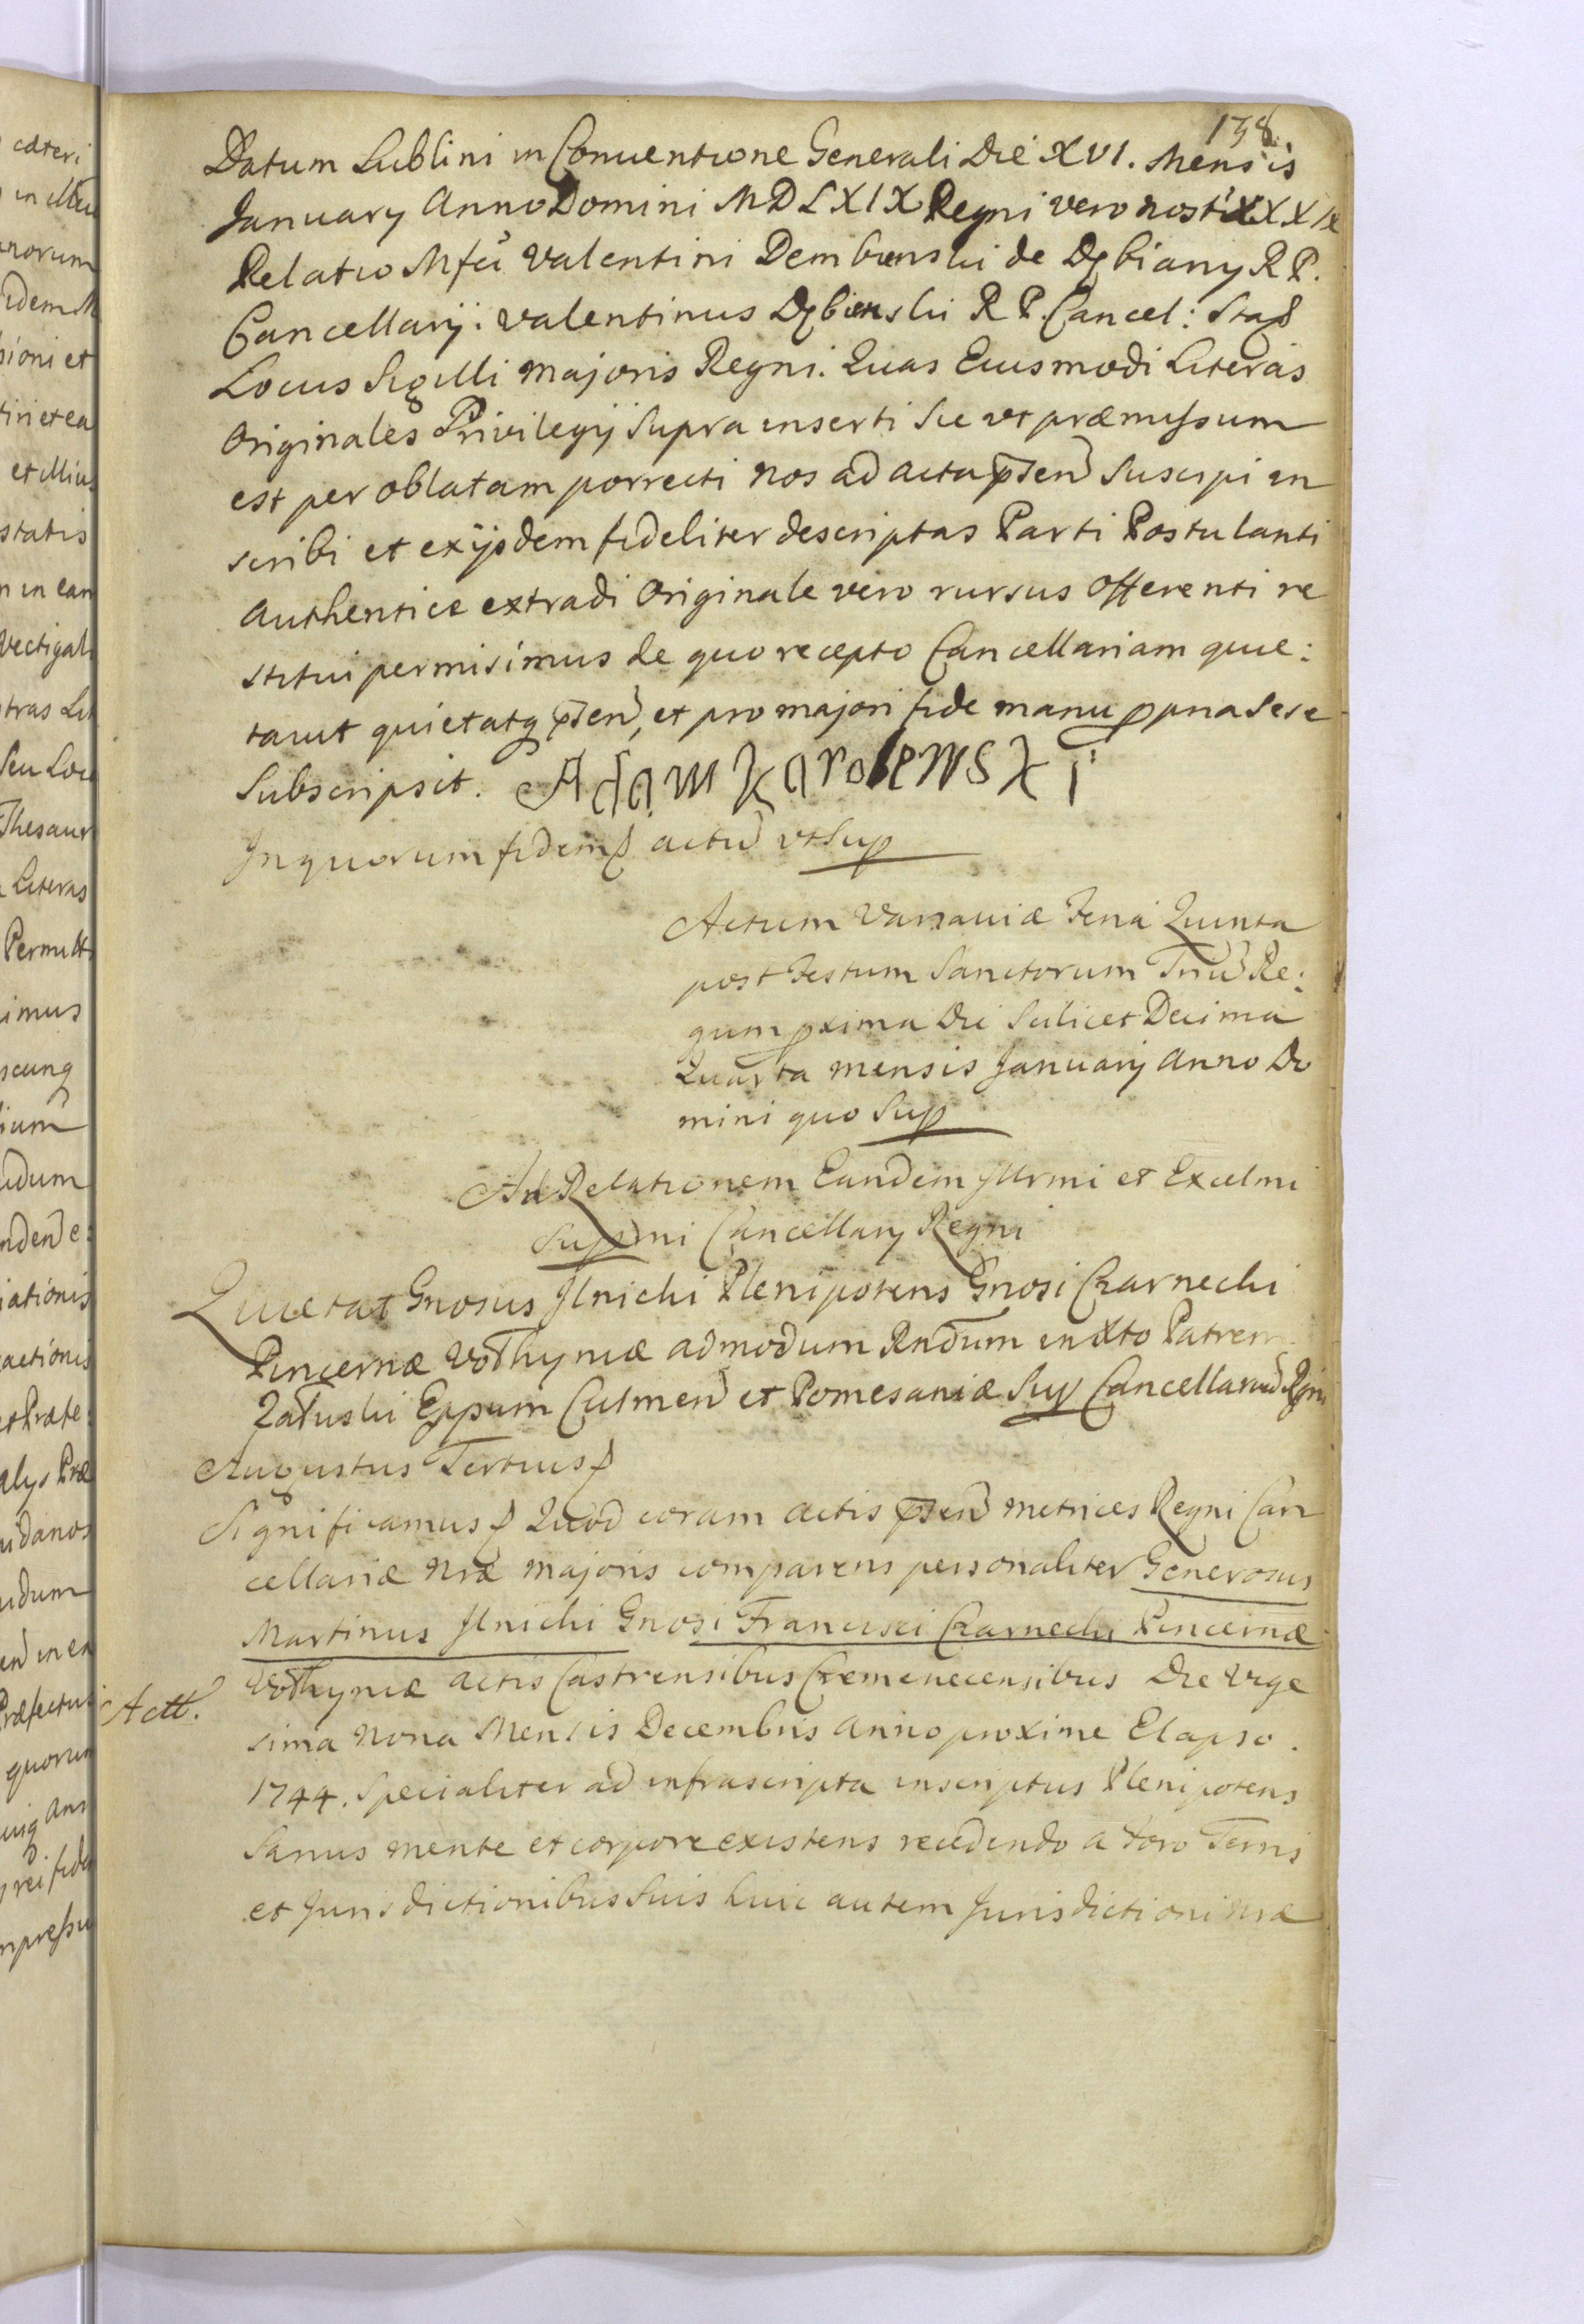 138
Datum Lublini in Conuentione Generali Die XVI. Mensis
January Anno Domini MDLXIX Regni vero nostri XXXIX
Relatio Mfci Valentini Dembienski de Dębiany R P.
Cancellarij. Valentinus Dębienski R P. Cancel: SstaßS
Locus Sigilli majoris Regni. Quas Eiusmodi Literas
Originales Privilegij Supra inserti Sic vt præmissum
est per oblatam porrecti nos ad acta psen Suscipi in
scribi et exijsdem fideliter descriptas Parti Postulanti
authentice extradi Originale vero rursus Offerenti re
stitui permisimus de quo recepto Cancellariam quie:
tavit quietatq psen, et pro majori fide manu ppria Sese
Subscripsit. Adam Karolewski
In quorum fidem actu vt Sup
Actum Varsaviæ Feria Quinta
post Festum Sanctorum Triu Re:
gum pxima Die Scilicet Decima
Quarta mensis January Anno Do
mini quo Sup
Ad Relationem Eandem Jllrmi et Excelmi
Supremi Cancellary Regni
Quietat Gnosus Jlnicki Plenipotens Gnosi Czarnecki
Pincernæ Vołhyniæ admodum Rndum in Xto Patrem
Załuski Eppum Culmen et Pomesaniæ Sup Cancellarium Rgni
Augustus Tertius
Significamus Quod coram actis psen metrices Regni Can
cellariæ nræ majoris comparens personaliter Generosus
Martinus Jlnicki Gnosi Francisci Czarnecki Pincernæ
Vołhyniæ actis Castrensibus Cremenecensibus Die Vige
Actt.
sima nona Mensis Decembris anno proxime Elapso.
1744. Specialiter ad infrascripta inscriptus Plenipotens
Sanus mente et corpore existens recedendo a foro Terris
et Jurisdictionibus Suis huic autem Jurisdictioni nræ